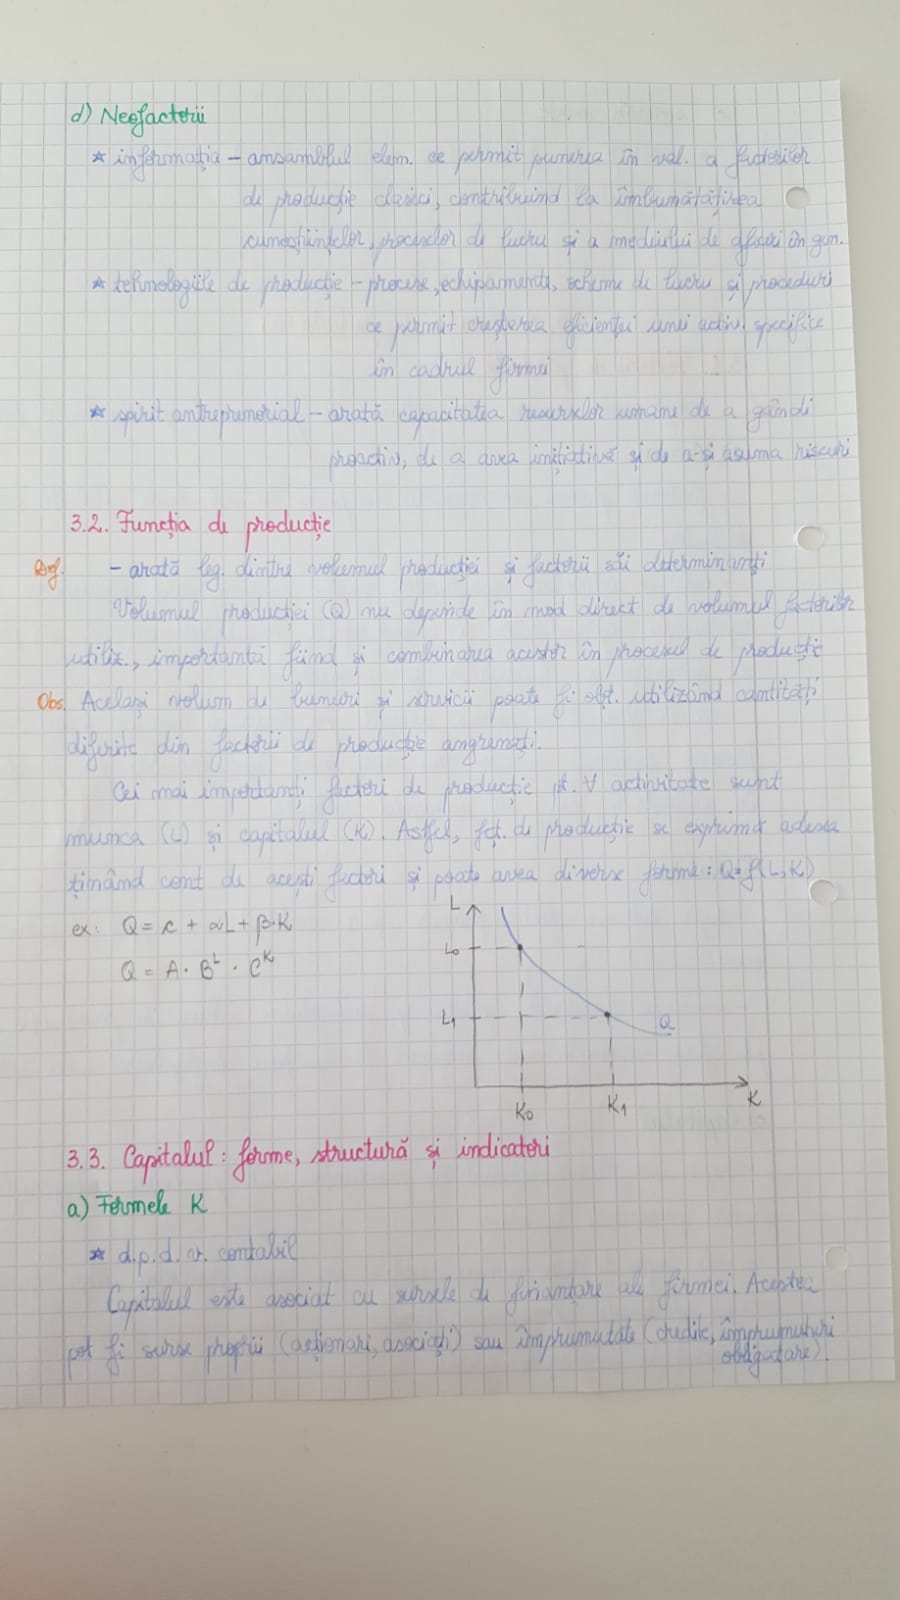 d) Neofactorii
* informație – ansamblul elem. ce permit punerea în val. a factorilor
de producție clasici, contribuind la îmbunătățirea
cunoștiințelor, proceselor de lucru și a mediului de afaceri în gen.
* tehnologiile de producție – procese, echipamente, scheme de lucru și proceduri
ce permit creșterea eficienței unei activ. specifice
în cadrul firmei
* spirit antreprenorial – arată capacitatea resurselor umane de a gândi
proactiv, de a avea inițiativă și de a-și asuma riscuri
3.2. Funcția de producție
Def. – arată leg dintre volumul producției și factorii săi determinanți
Volumul producției (Q) nu depinde în mod direct de volumul factorilor
utiliz., importantă fiind și combinarea acestor în procesul de producție
Obs. Același volum de bunuri și servicii poate fi obț. utilizând cantități
diferite din factorii de producție angrenați.
Cei mai importanți factori de producție pt. ∀ activitate sunt
munca (L) și capitalul (K). Astfel, fcț. de producție se exprimă adesea
ținând cont de acești factori și poate avea diverse forme: Q=f(L,K)
ex: Q = r + αL + β·K
Q = A · B^L · C^K
L
L₀
L₁
K₀
K₁
Q
K
3.3. Capitalul: forme, structură și indicatori
a) Formele K
* d.p.d.v. contabil
Capitalul este asociat cu sursele de finanțare ale firmei. Acestea
pot fi surse proprii (acționari, asociați) sau împrumutate (credite, împrumuturi
obligatare).